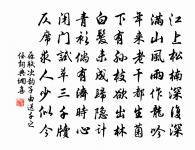 江上松楠深復深
滿山風雨作龍吟
年來老幹都生菌
下有孫枝欲出林
白髮未成歸隱計
青衫儻有濟時心
閉門試草三千牘
仄席求人少似今
蘇軾次韻子由送千之
侄